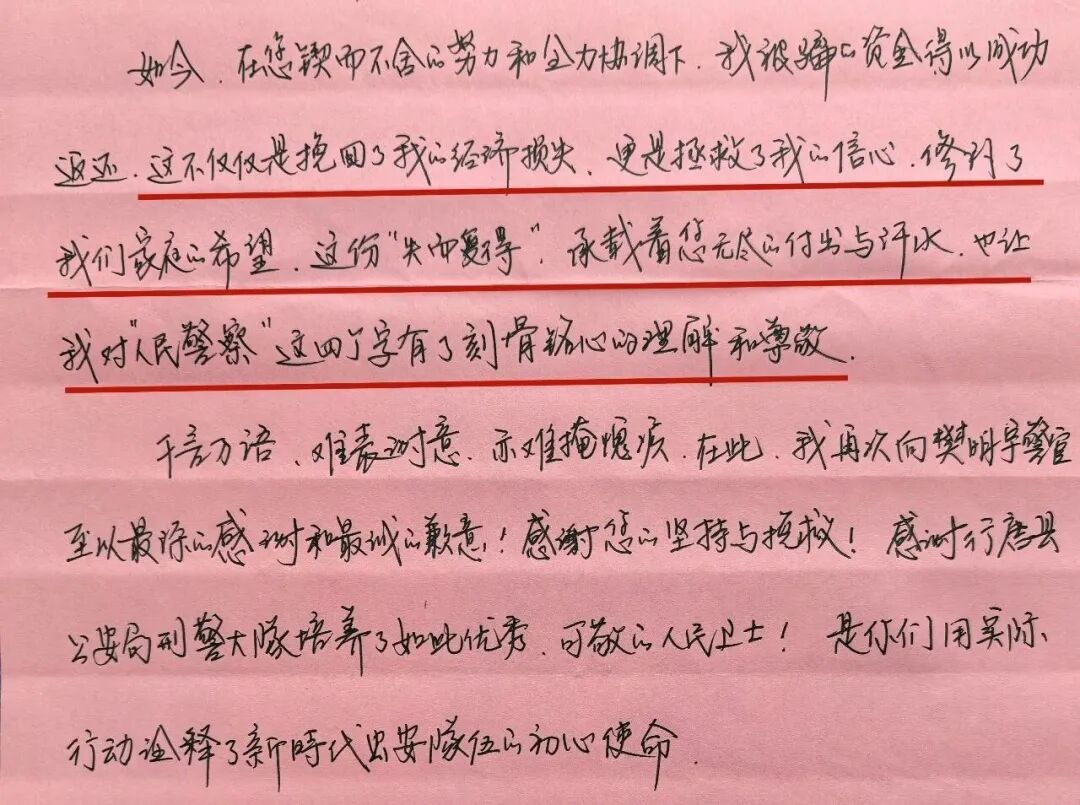 如今，在您锲而不舍的努力和全力协调下，我被骗的资金得以成功
返还，这不仅仅是挽回了我的经济损失，更是拯救了我的信心，修补了
我们家庭的希望，这份“失而复得”，承载着您无尽的付出与汗水，也让
我对“人民警察”这四个字有了刻骨铭心的理解和尊敬。
千言万语，难表谢意，亦难掩愧疚，在此，我再次向樊明宇警官
至以最深的感谢和最诚的歉意！感谢您的坚持与挽救！感谢行唐县
公安局刑警大队培养了如此优秀、可敬的人民卫士！是你们用实际
行动诠释了新時代公安队伍的初心使命。